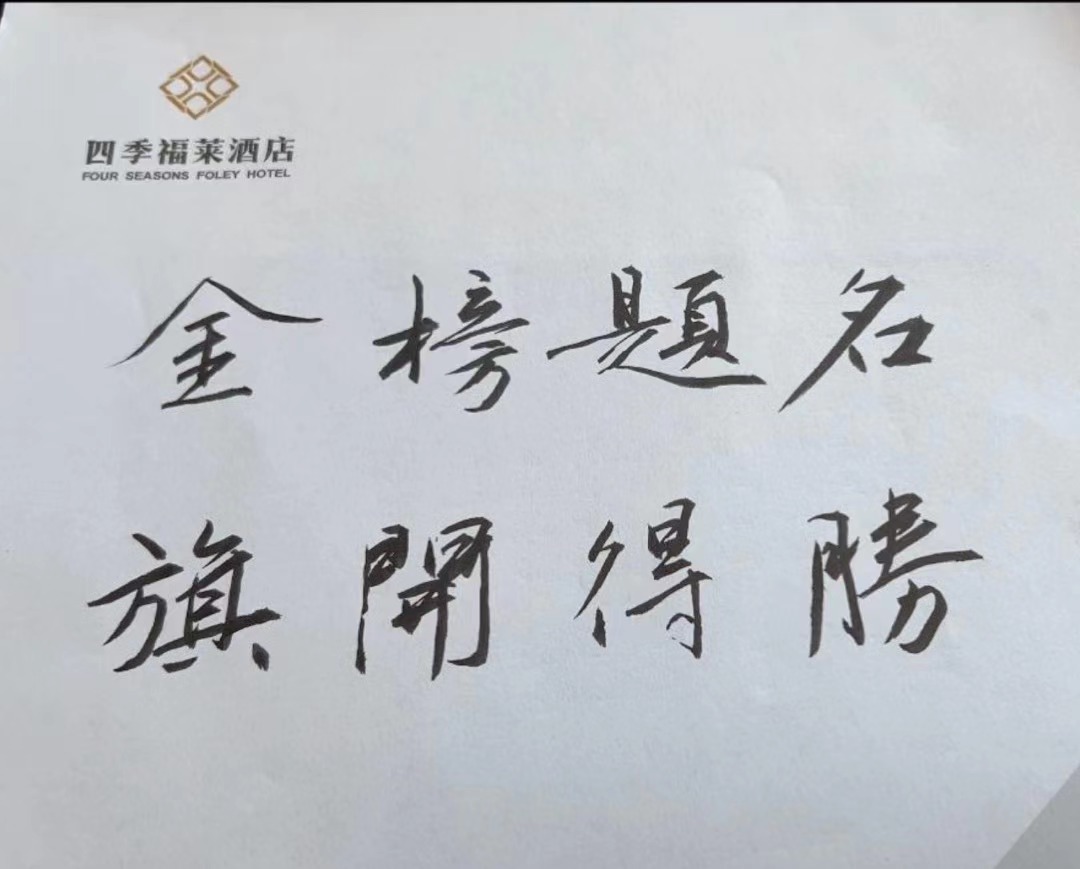 四季福莱酒店
FOUR SEASONS FOLEY HOTEL
金榜題名
旗開得勝